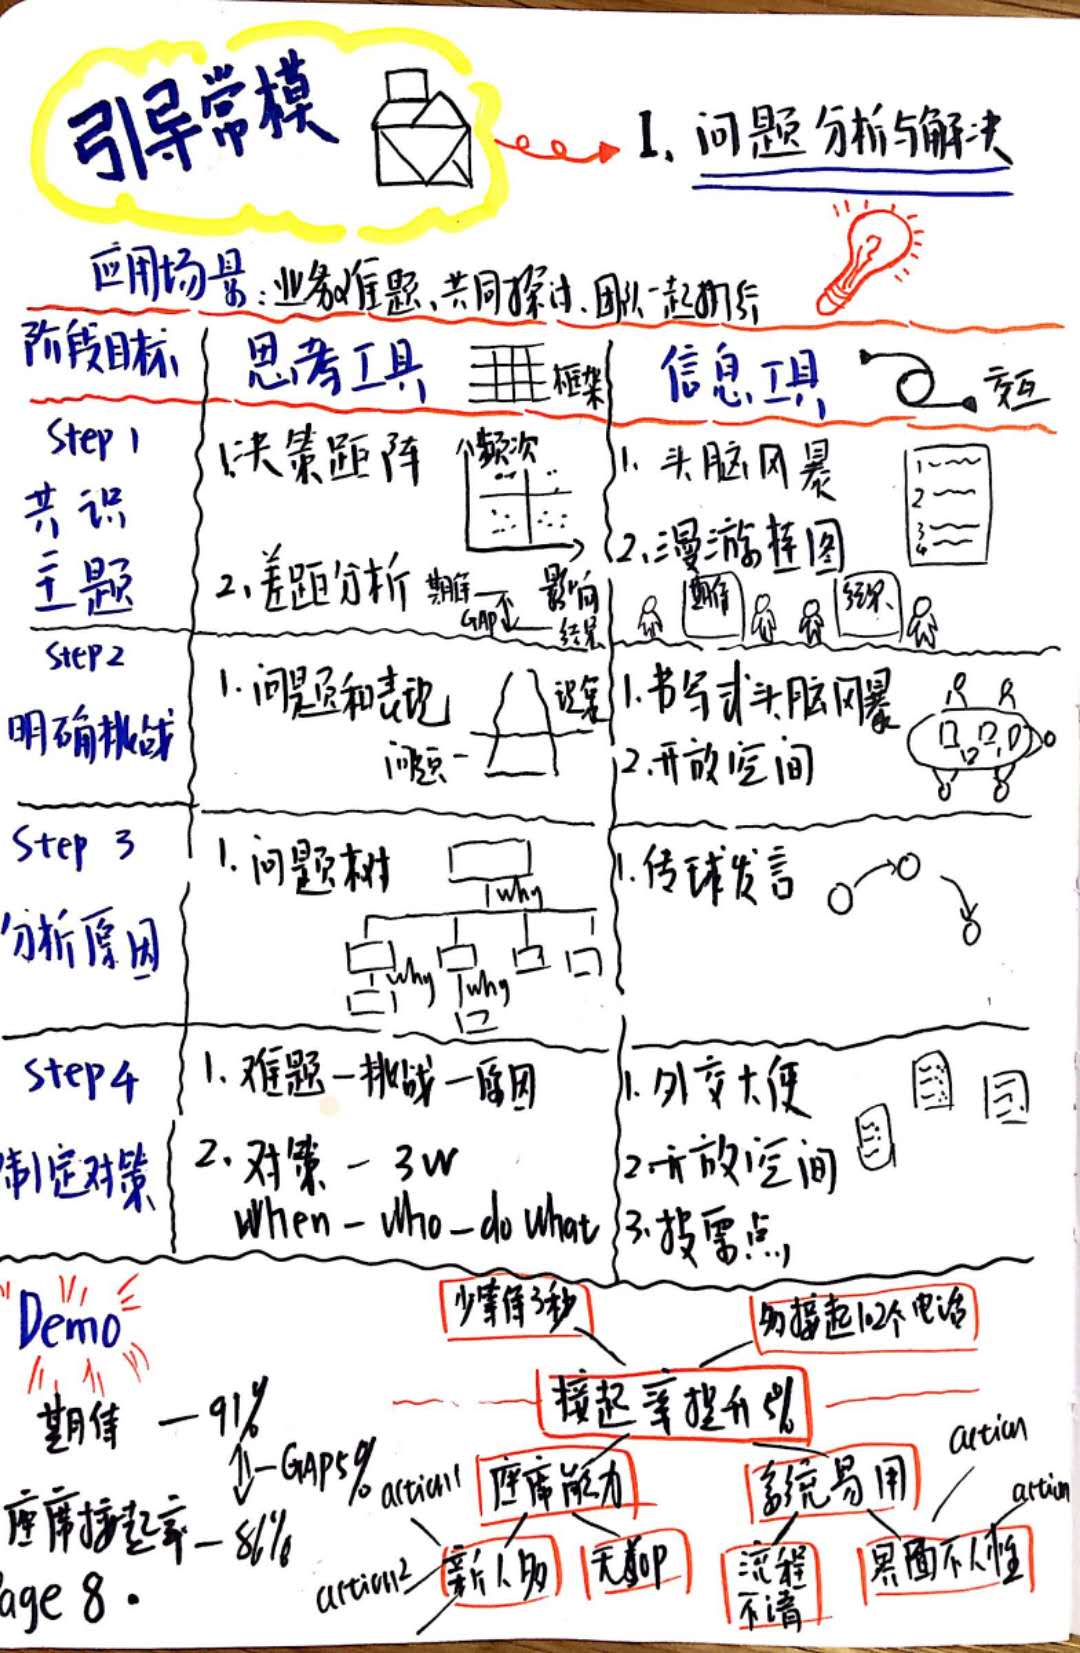 引导常模
1、问题分析与解决
应用场景：业务难题、共同探讨、团队一起执行
阶段目标
思考工具
框架
信息工具
交互
Step 1
共识
主题
1.决策距阵
频次
影响
2.差距分析
期待
GAP
结果
1. 头脑风暴
1
2
3
4
2.漫游挂图
期待
结果
Step2
明确挑战
1.问题和表现
现象
问题
1.书写式头脑风暴
2.开放空间
Step 3
分析原因
1.问题树
why
why
why
1.传球发言
Step4
制定对策
1.难题－挑战－原因
2.对策－3W
When－who－do what
1.外交大使
2.开放空间
3.投票点
Demo
期待 — 91%
GAP5%
座席接起率 — 86%
少等待3秒
多接起102个电话
接起率提升5%
座席能力
系统易用
action1
action2
action
action
新人多
无SOP
流程
不清
界面不人性
Page 8 .